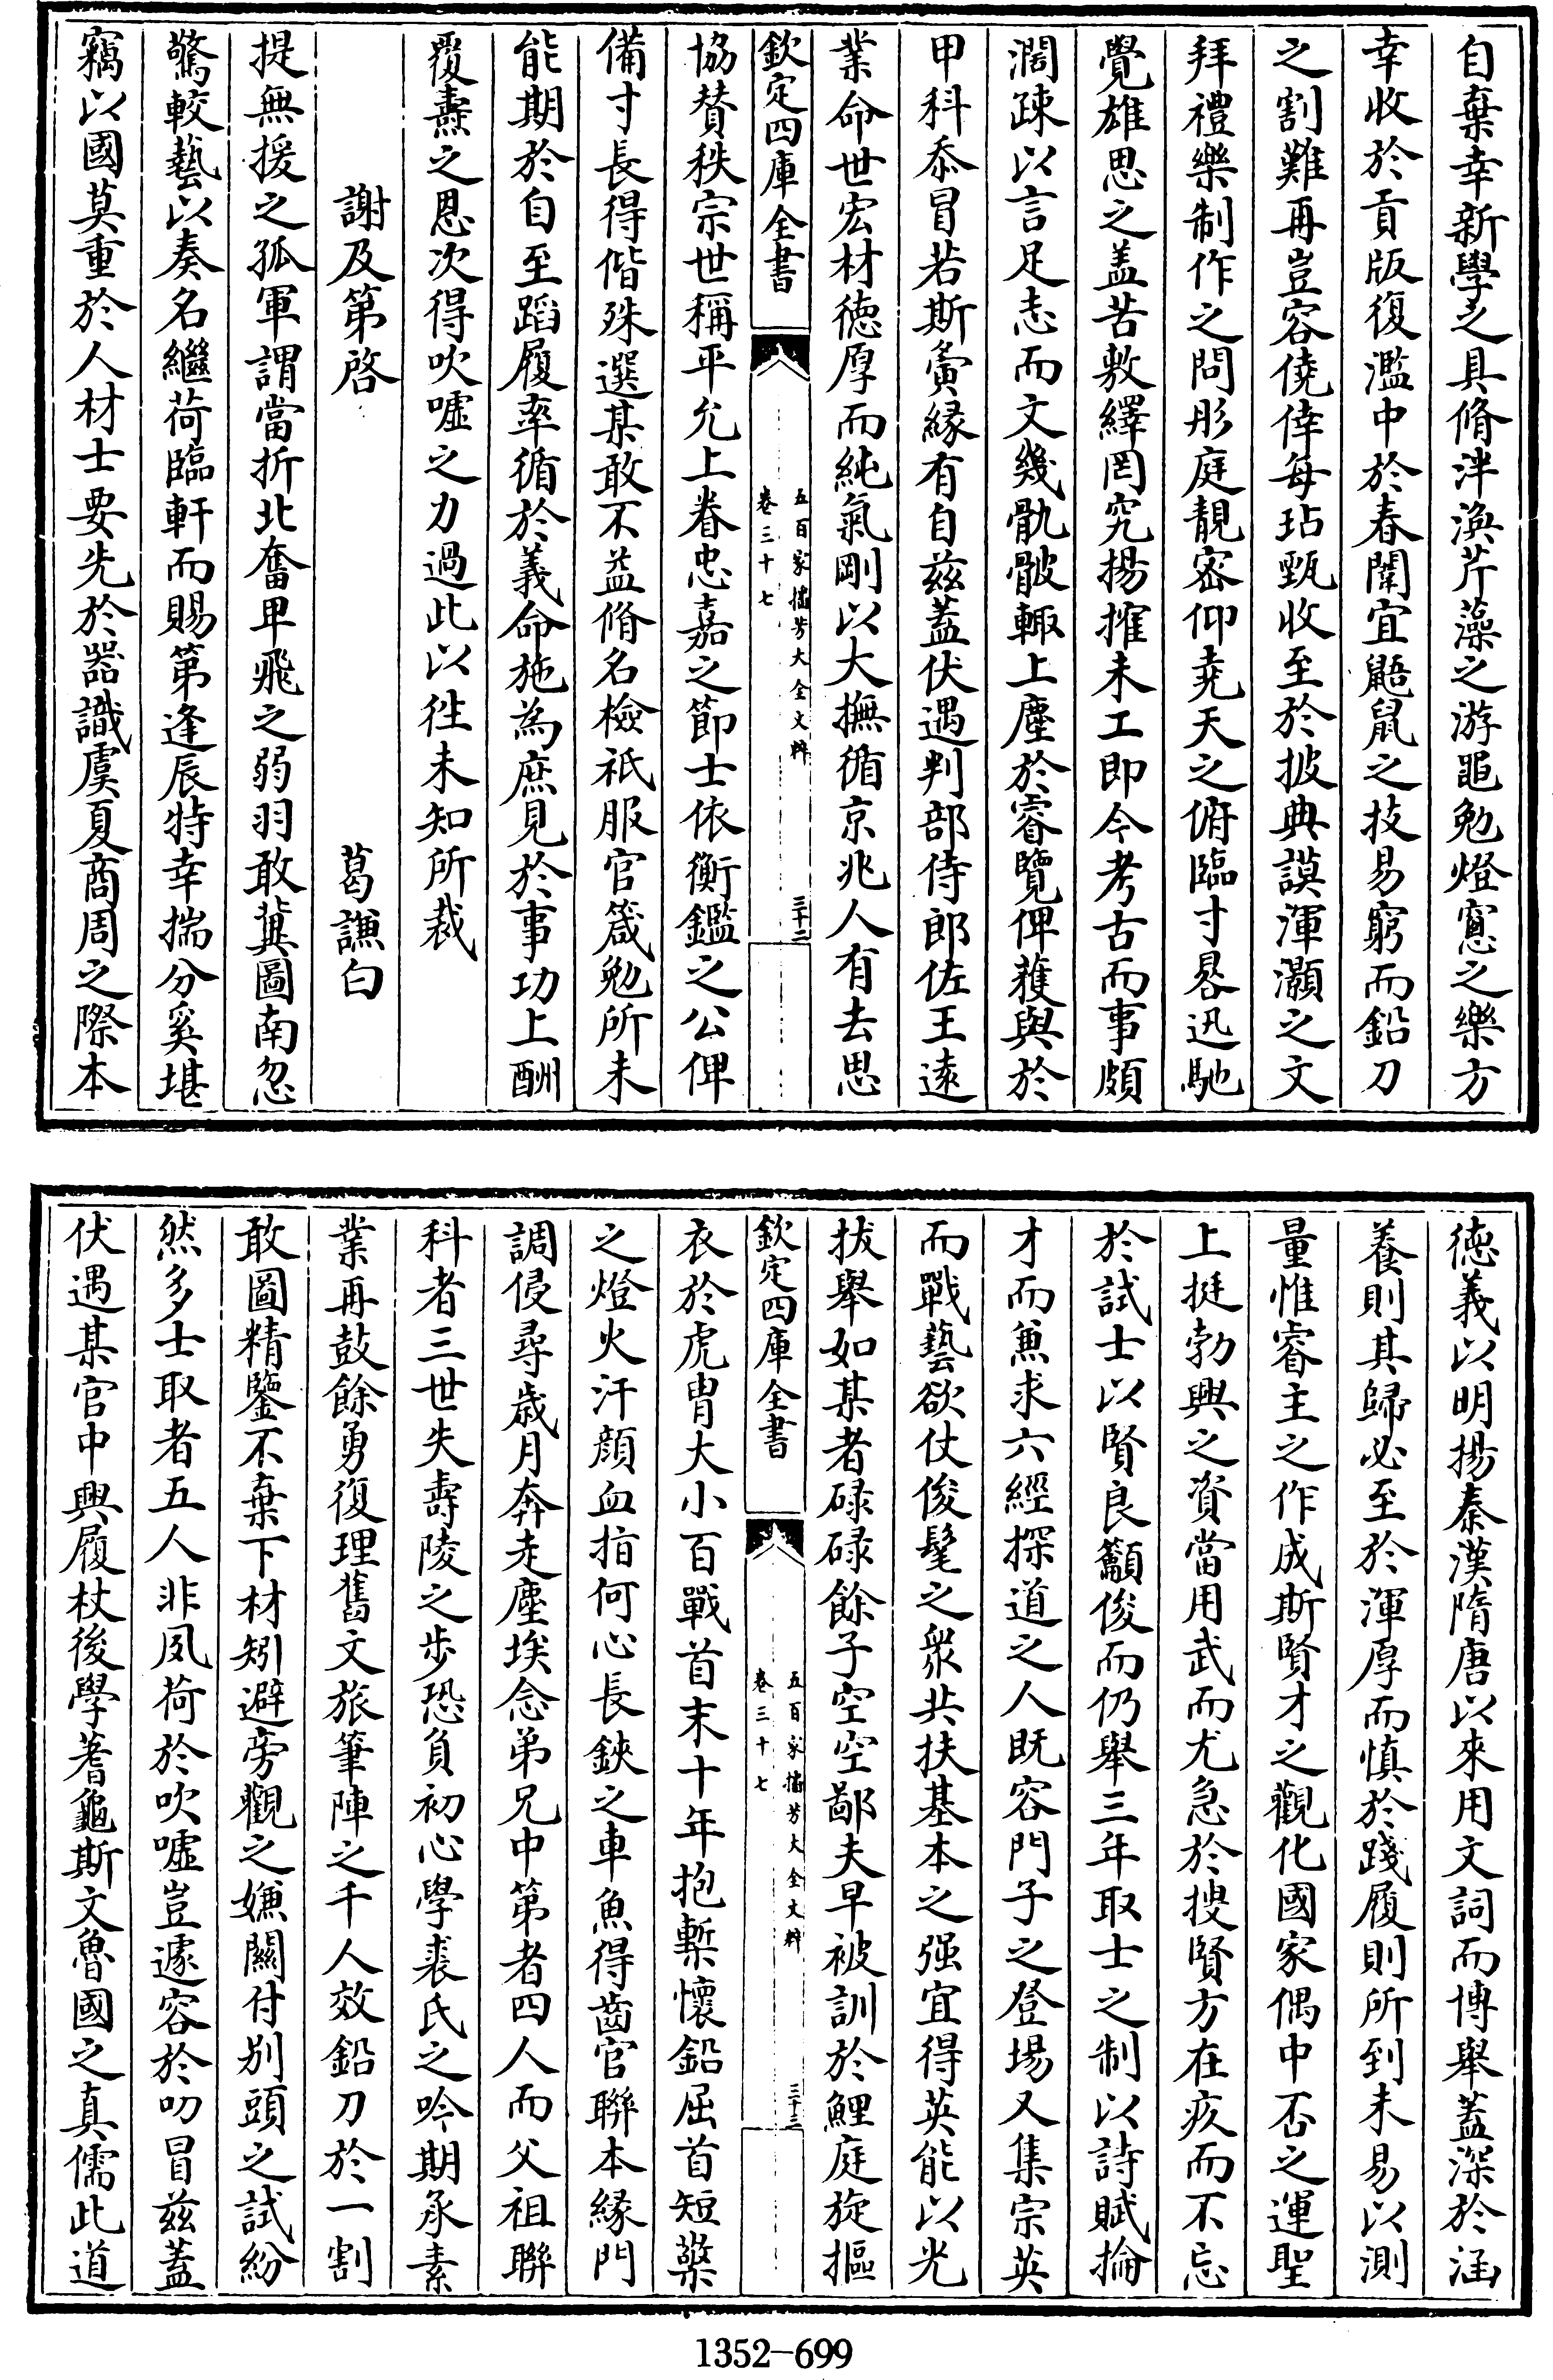 自棄幸新學之具脩泮渙芹藻之游黽勉燈窻之樂方
幸收於貢版復濫中於春闈宜鼯鼠之技易窮而鉛刀
之割難再豈容僥倖每玷甄收至於披典謨渾灝之文
拜禮樂制作之問彤庭靚密仰堯天之俯臨寸晷迅馳
覺雄思之盖苦敷繹罔究揚搉未工即今考古而事頗
濶疎以言足志而文幾骫骳輙上塵於睿覽俾蒦與於
甲科忝冒若斯夤緣有自兹蓋伏遇判部侍郎佐王逺
業命世宏材徳厚而純氣剛以大撫循京兆人有去思
欽定四庫全書
五百家播芳大全文粹
卷三十七
三十二
協賛秩宗世稱平允上眷忠嘉之節士依衡鑑之公俾
備寸長得偕殊選某敢不益脩名檢祇服官箴勉所未
能期於自至蹈履率循於義命施為庶見於事功上酬
覆燾之恩次得吹噓之力過此以徃未知所裁
謝及第啓
葛謙白
提無援之孤軍謂當折北奮卑飛之弱羽敢兾圖南忽
驚較藝以奏名繼荷臨軒而賜第逢辰特幸揣分奚堪
竊以國莫重於人材士要先於器識虞夏商周之際本
徳義以明揚秦漢隋唐以來用文詞而博舉蓋深於涵
養則其歸必至於渾厚而慎於踐履則所到未易以測
量惟睿主之作成斯賢才之觀化國家偶中否之運聖
上挺勃興之資當用武而尤急於搜賢方在疚而不忘
於試士以賢良籲俊而仍舉三年取士之制以詩賦掄
才而兼求六經探道之人既容門子之登場又集宗英
而戰藝欲仗俊髦之衆共扶基本之强宜得英能以光
拔舉如某者碌碌餘子空空鄙夫早被訓於鯉庭旋摳
欽定四庫全書
五百家播芳大全文粹
卷三十七
三十三
衣於虎胄大小百戰首末十年抱槧懷鉛屈首短檠
之燈火汗顔血指何心長鋏之車魚得齒官聯本緣門
調侵尋歳月奔走塵埃念弟兄中第者四人而父祖聯
科者三世失壽陵之步恐負初心學裘氏之吟期承素
業再鼓餘勇復理舊文旅筆陣之千人效鉛刀於一割
敢圖精鑒不棄下材矧避旁觀之嫌闗付别頭之試紛
然多士取者五人非夙荷於吹噓豈遽容於叨冒兹蓋
伏遇某官中興履杖後學蓍龜斯文魯國之真儒此道
1352-699